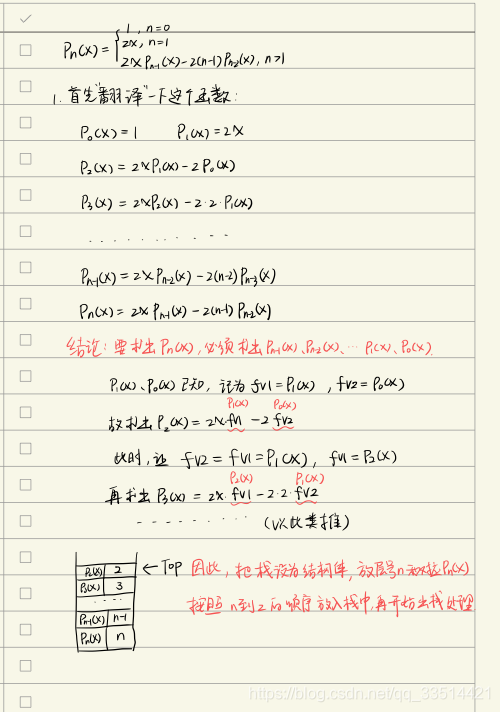 Pn(x)= { 1, n=0
2x, n=1
2xPn-1(x)-2(n-1)Pn-2(x), n>1
1. 首先"翻译"一下这个函数:
P0(x)=1 P1(x)=2x
P2(x)=2xP1(x)-2P0(x)
P3(x)=2xP2(x)-2·2·P1(x)
··········
Pn-1(x)=2xPn-2(x)-2(n-2)Pn-3(x)
Pn(x)=2xPn-1(x)-2(n-1)Pn-2(x)
结论:要求出Pn(x),必须求出Pn-1(x)、Pn-2(x)、…P1(x)、P0(x).
P1(x)、P0(x)已知,记为fv1=P1(x),fv2=P0(x)
P1(x) P0(x)
故求出P2(x)=2x·fv1-2·fv2
此时,让 fv2=fv1=P1(x),fv1=P2(x)
P2(x) P1(x)
再求出P3(x)=2x·fv1-2·2·fv2
········(以此类推)
P2(x) 2 ←Top 因此,把栈设为结构体,放层号n和对应Pn(x)
P3(x) 3
····
按照n到2的顺序放入栈中,再开始出栈处理
Pn-1(x) n-1
Pn(x) n
https://blog.csdn.net/qq_33514421